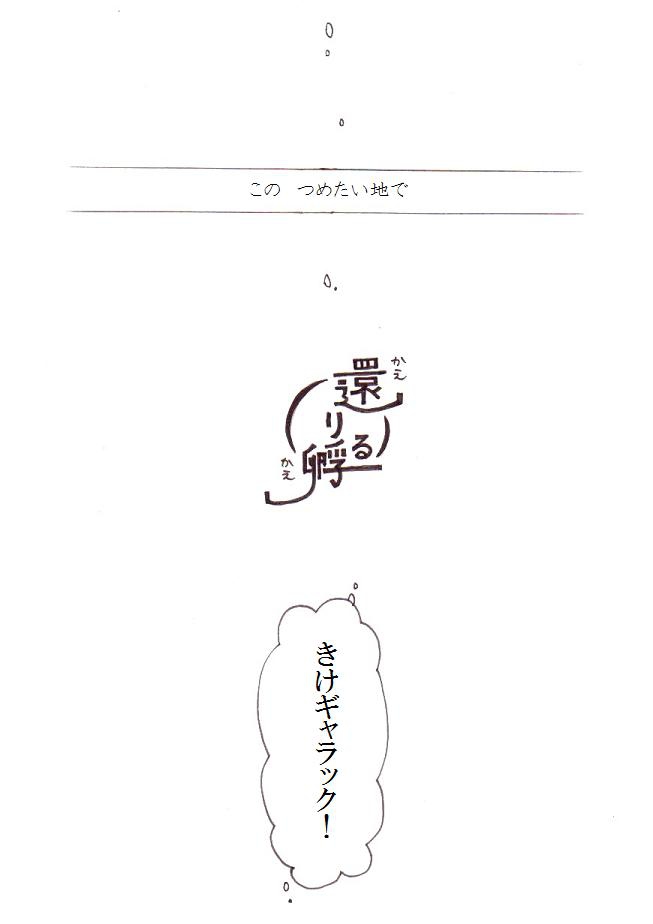 この　つめたい地で
還り孵る
かえ
かえ
きけギャラック！